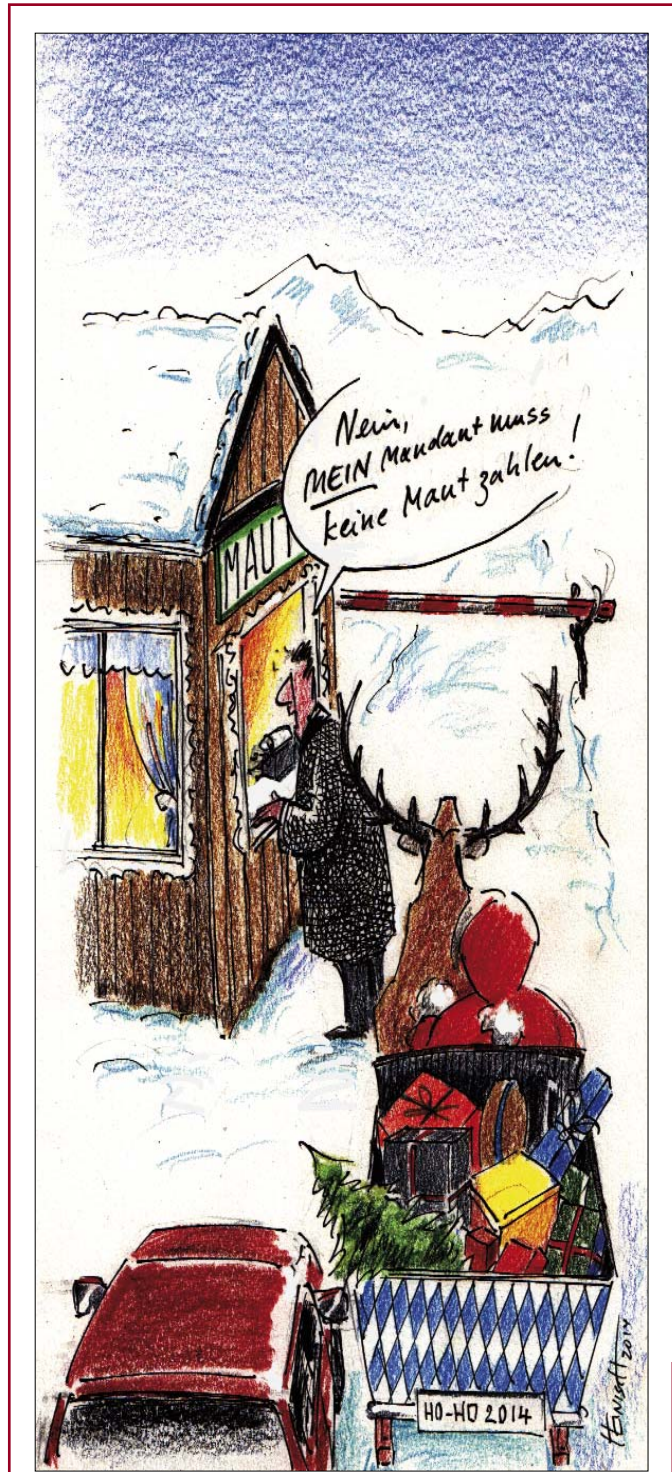 Nein,
MEIN Mandant muss
keine Maut zahlen!
MAUT
HO-HO 2014
2014